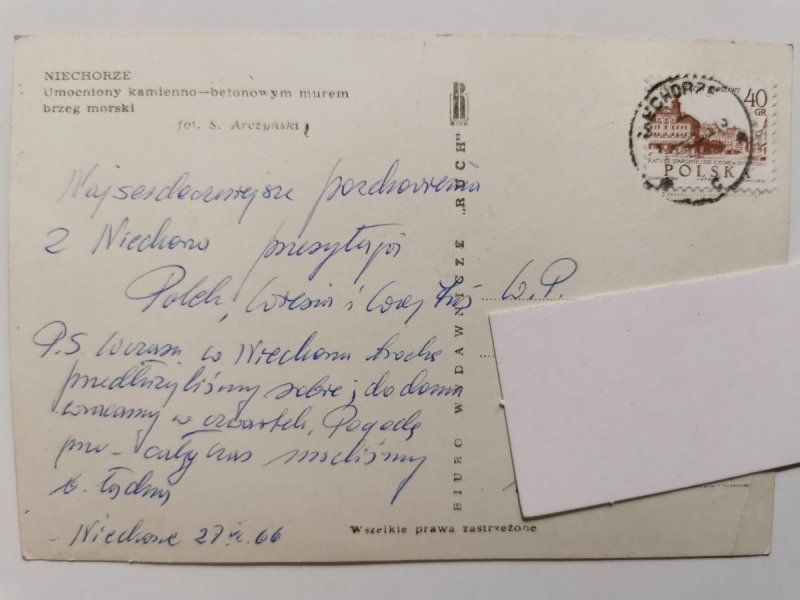 NIECHORZE
Umocniony kamienno—betonowym murem
brzeg morski
fot. S. Arczyński
Najserdeczniejsze pozdrowienia
z Niechorza przesyłają
i
P.S. Wczasy w Niechorzu trochę
przedłużyliśmy sobie, do domu
wracamy w czwartek. Pogodę
cały czas mieliśmy
b. ładną
Niechorze 27 VI. 66
BIURO WYDAWNICZE „RUCH"
RUCH
W.P.
Wszelkie prawa zastrzeżone
NIECHORZE
40 GR
POLSKA